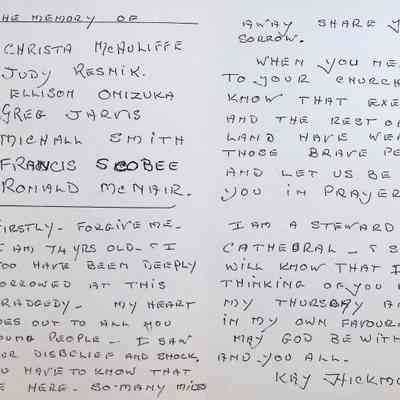 THE MEMORY OF
CHRISTA McAULIFFE
JUDY RESNIK.
ELLISON OMIZUKA
GREG JARVIS
MICHALL SMITH
FRANCIS SCOBEE
RONALD McNAIR.
FIRSTLY - FORGIVE ME -
I AM 74 YRS OLD - & I
TOO HAVE BEEN DEEPLY
SORROWED AT THIS
TRADGEDY - MY HEART
GOES OUT TO ALL YOU
YOUNG PEOPLE - I SAW
YOUR DISBELIEF AND SHOCK,
YOU HAVE TO KNOW THAT
WE HERE - SO MANY MILES
AWAY SHARE
SORROW.
WHEN YOU
TO YOUR CHURCH
KNOW THAT
AND THE REST OF
LAND HAVE
THOSE BRAVE
AND LET US BE
YOU IN PRAYER
I AM A STEWARD
CATHEDRAL - &
WILL KNOW THAT I
THINKING OF YOU
MY THURSDAY
IN MY OWN
MAY GOD BE WITH
AND YOU ALL.
KAY HICKM